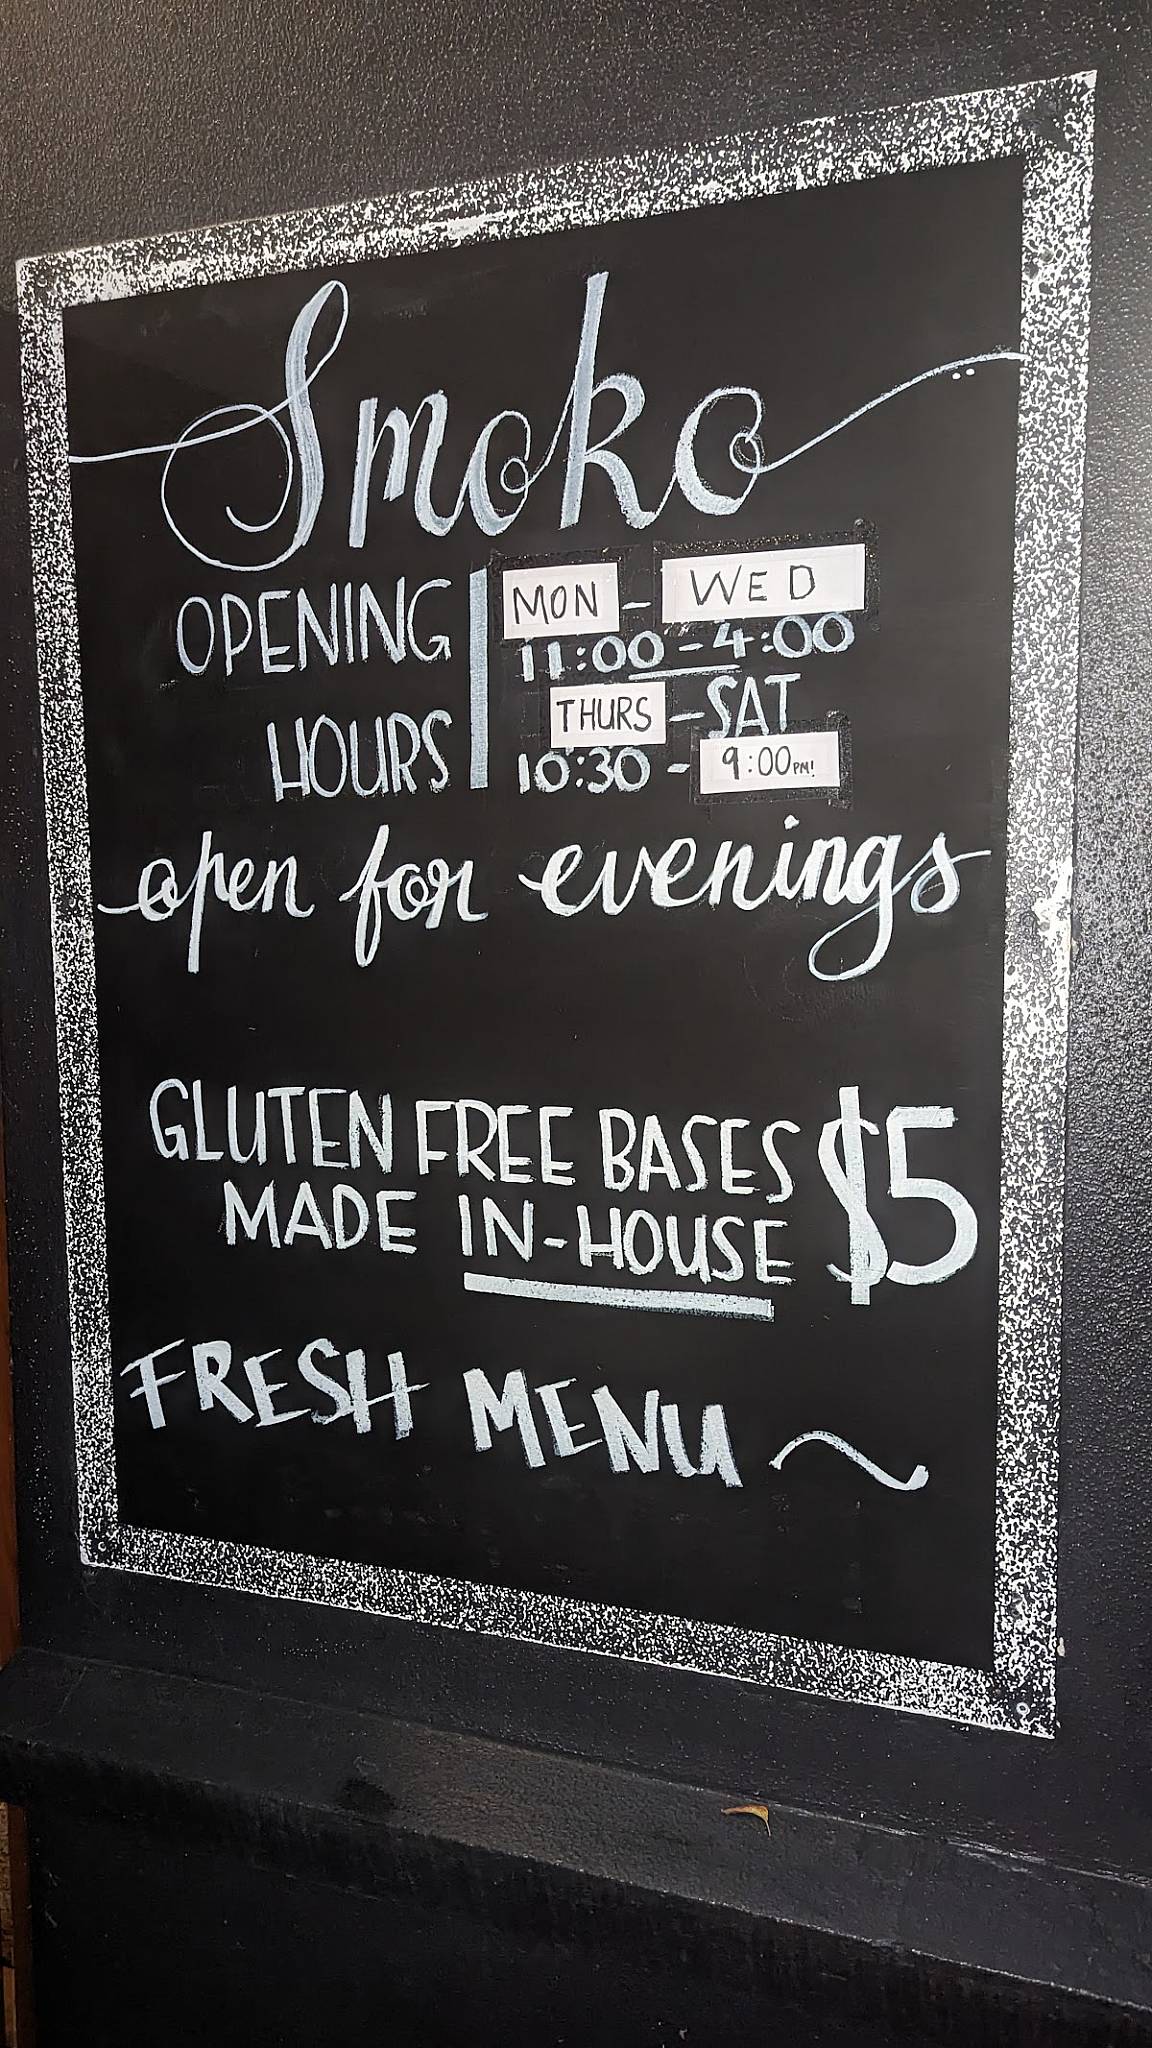 Smoko
OPENING HOURS
MON - WED
11:00 - 4:00
THURS - SAT
10:30 - 9:00PM!
open for evenings
GLUTEN FREE BASES $5
MADE IN-HOUSE
FRESH MENU ~